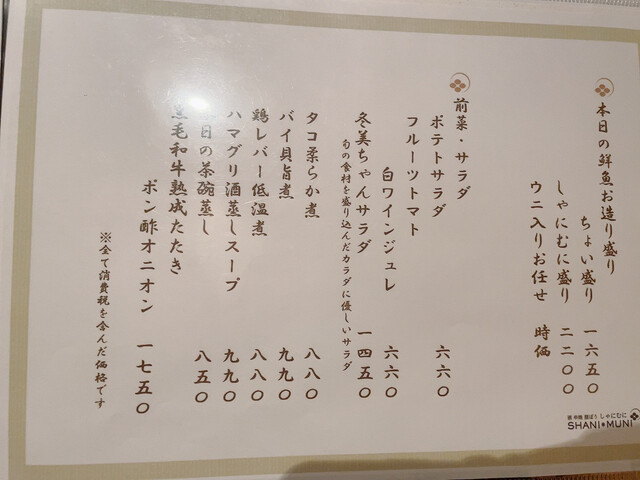 本日の鮮魚お造り盛り
ちょい盛り 一六五〇
しゃにむに盛り 二二〇〇
ウニ入りお任せ 時価
前菜・サラダ
ポテトサラダ 六六〇
フルーツトマト
白ワインジュレ 六六〇
冬美ちゃんサラダ 一四五〇
旬の食材を盛り込んだカラダに優しいサラダ
タコ柔らか煮 八八〇
バイ貝旨煮 九九〇
鶏レバー低温煮 八八〇
ハマグリ酒蒸しスープ 九九〇
日の茶碗蒸し 八五〇
黒毛和牛熟成たたき
ポン酢オニオン 一七五〇
※全て消費税を含んだ価格です
しゃにむに
SHANI MUNI